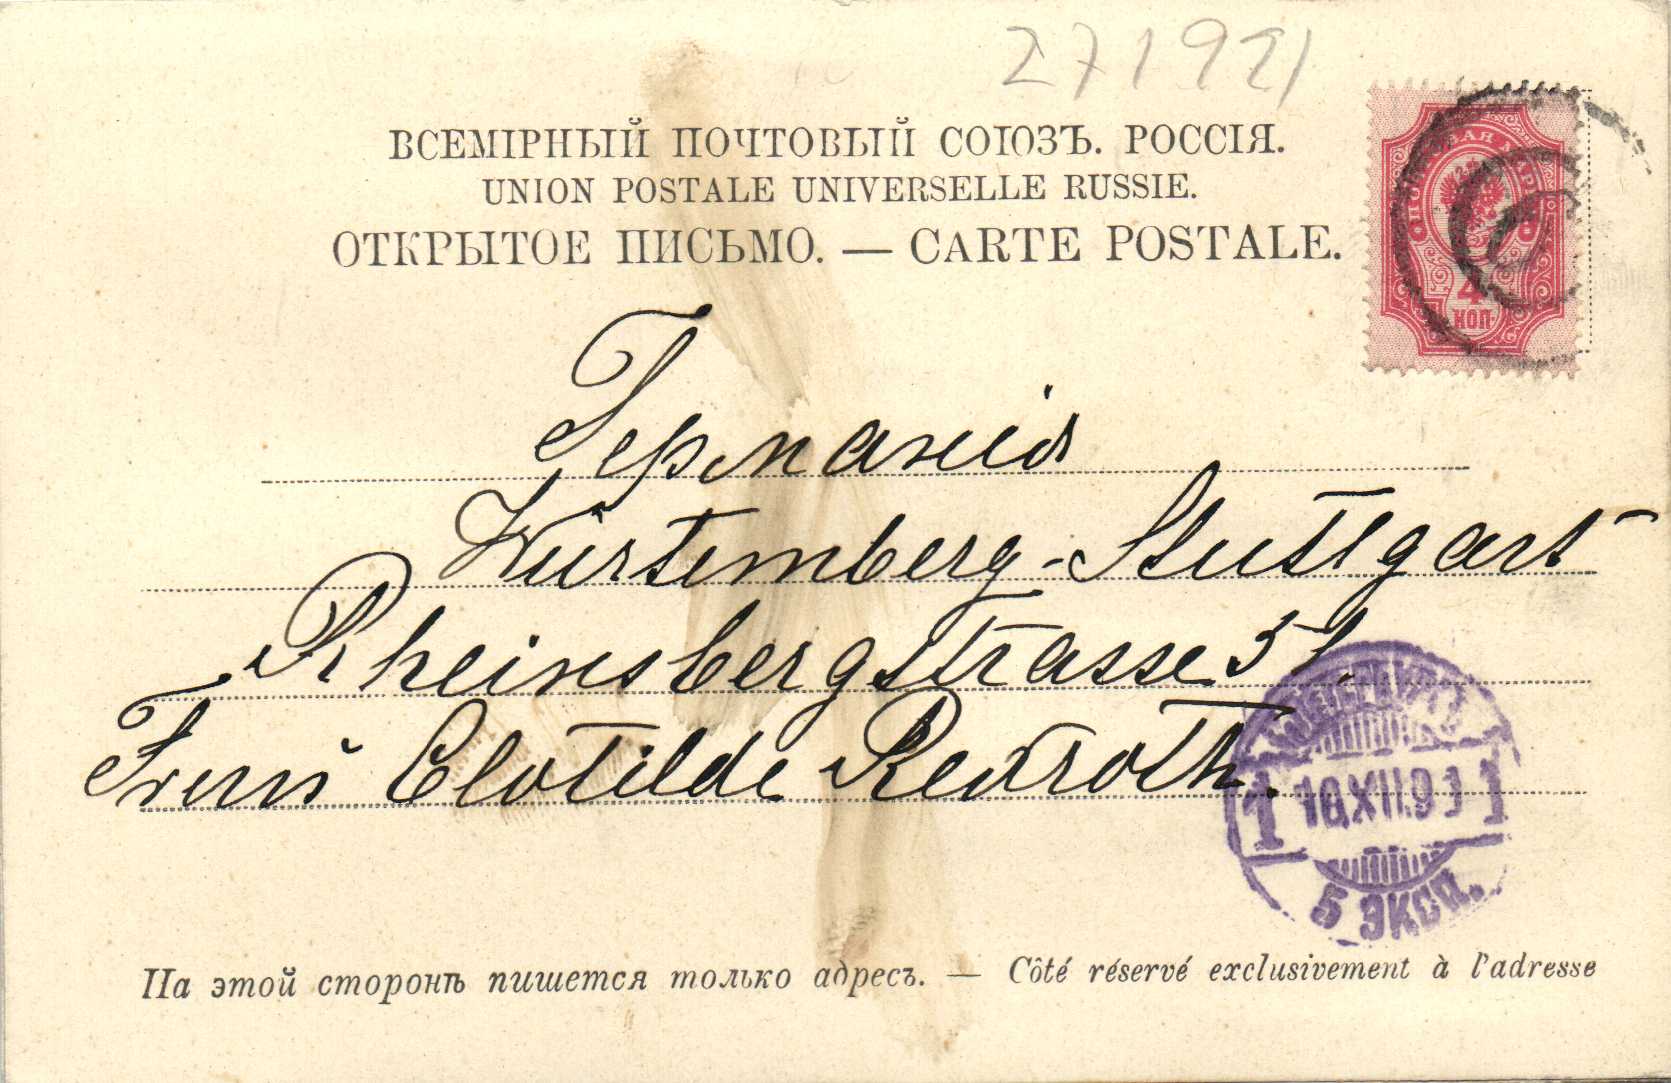 271921
ВСЕМІРНЫЙ ПОЧТОВЫЙ СОЮЗЪ. РОССІЯ.
UNION POSTALE UNIVERSELLE RUSSIE.
ОТКРЫТОЕ ПИСЬМО. — CARTE POSTALE.
4
КОП
Германія
Würtemberg-Stuttgart
Rheinsbergstrasse 51.
Clotilde Rexroth.
1 10XII.9 1
5 ЭКСП.
На этой сторонѣ пишется только адресъ. — Côté réservé exclusivement à l'adresse